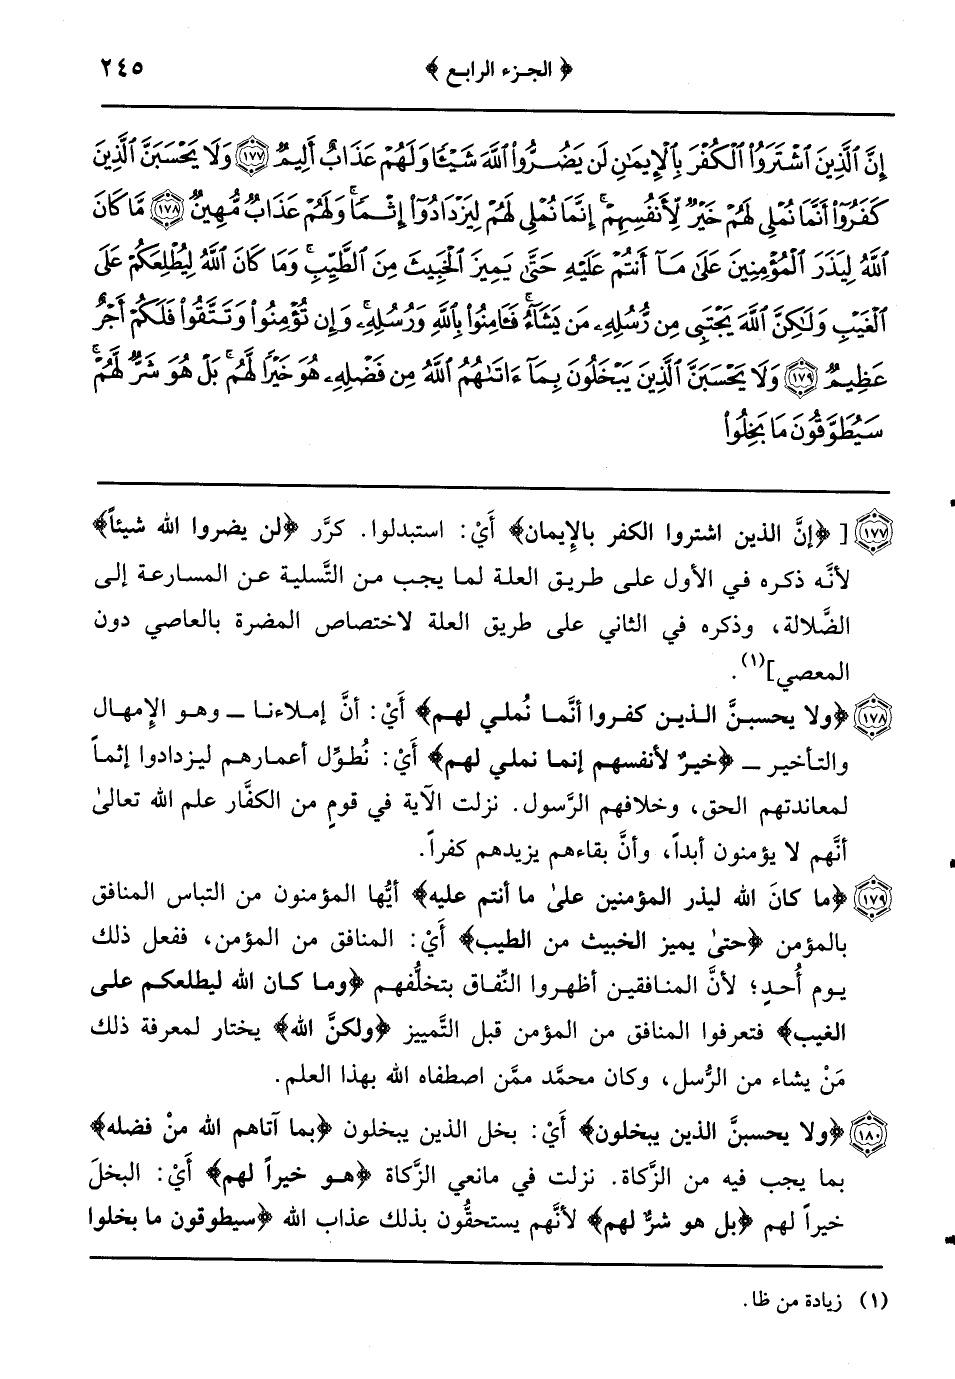 ﴿ الجزء الرابع ﴾ ٢٤٥
إِنَّ ٱلَّذِينَ ٱشْتَرَوُا۟ ٱلْكُفْرَ بِٱلْإِيمَـٰنِ لَن يَضُرُّوا۟ ٱللَّهَ شَيْـًٔا وَلَهُمْ عَذَابٌ أَلِيمٌ ١٧٧ وَلَا يَحْسَبَنَّ ٱلَّذِينَ
كَفَرُوٓا۟ أَنَّمَا نُمْلِى لَهُمْ خَيْرٌ لِّأَنفُسِهِمْ ۚ إِنَّمَا نُمْلِى لَهُمْ لِيَزْدَادُوٓا۟ إِثْمًا ۚ وَلَهُمْ عَذَابٌ مُّهِينٌ ١٧٨ مَّا كَانَ
ٱللَّهُ لِيَذَرَ ٱلْمُؤْمِنِينَ عَلَىٰ مَآ أَنتُمْ عَلَيْهِ حَتَّىٰ يَمِيزَ ٱلْخَبِيثَ مِنَ ٱلطَّيِّبِ ۗ وَمَا كَانَ ٱللَّهُ لِيُطْلِعَكُمْ عَلَى
ٱلْغَيْبِ وَلَـٰكِنَّ ٱللَّهَ يَجْتَبِى مِن رُّسُلِهِۦ مَن يَشَآءُ ۖ فَـَٔامِنُوا۟ بِٱللَّهِ وَرُسُلِهِۦ ۚ وَإِن تُؤْمِنُوا۟ وَتَتَّقُوا۟ فَلَكُمْ أَجْرٌ
عَظِيمٌ ١٧٩ وَلَا يَحْسَبَنَّ ٱلَّذِينَ يَبْخَلُونَ بِمَآ ءَاتَىٰهُمُ ٱللَّهُ مِن فَضْلِهِۦ هُوَ خَيْرًا لَّهُم ۖ بَلْ هُوَ شَرٌّ لَّهُمْ ۖ
سَيُطَوَّقُونَ مَا بَخِلُوا۟
١٧٧ [﴿إنَّ الذين اشتروا الكفر بالإيمان﴾ أَيْ: استبدلوا. كرَّر ﴿لن يضروا الله شيئاً﴾
لأنَّه ذكره في الأول على طريق العلة لما يجب من التَّسلية عن المسارعة إلى
الضَّلالة، وذكره في الثاني على طريق العلة لاختصاص المضرة بالعاصي دون
المعصي](١).
١٧٨ ﴿ولا يحسبنَّ الذين كفروا أنَّما نُملي لهم﴾ أَيْ: أنَّ إملاءنا ــ وهو الإِمهال
والتأخير ــ ﴿خيرٌ لأنفسهم إنما نملي لهم﴾ أَيْ: نُطوِّل أعمارهم ليزدادوا إثماً
لمعاندتهم الحق، وخلافهم الرَّسول. نزلت الآية في قومٍ من الكفَّار علم الله تعالىٰ
أنَّهم لا يؤمنون أبداً، وأنَّ بقاءهم يزيدهم كفراً.
١٧٩ ﴿ما كانَ الله ليذر المؤمنين علىٰ ما أنتم عليه﴾ أيُّها المؤمنون من التباس المنافق
بالمؤمن ﴿حتىٰ يميز الخبيث من الطيب﴾ أَيْ: المنافق من المؤمن، ففعل ذلك
يوم أُحدٍ؛ لأنَّ المنافقين أظهروا النِّفاق بتخلُّفهم ﴿وما كان الله ليطلعكم على
الغيب﴾ فتعرفوا المنافق من المؤمن قبل التَّمييز ﴿ولكنَّ الله﴾ يختار لمعرفة ذلك
مَنْ يشاء من الرُّسل، وكان محمَّد ممَّن اصطفاه الله بهذا العلم.
١٨٠ ﴿ولا يحسبنَّ الذين يبخلون﴾ أَيْ: بخل الذين يبخلون ﴿بما آتاهم الله منْ فضله﴾
بما يجب فيه من الزَّكاة. نزلت في مانعي الزَّكاة ﴿هو خيراً لهم﴾ أَيْ: البخلَ
خيراً لهم ﴿بل هو شرٌّ لهم﴾ لأنَّهم يستحقُّون بذلك عذاب الله ﴿سيطوقون ما بخلوا
(١) زيادة من ظا.